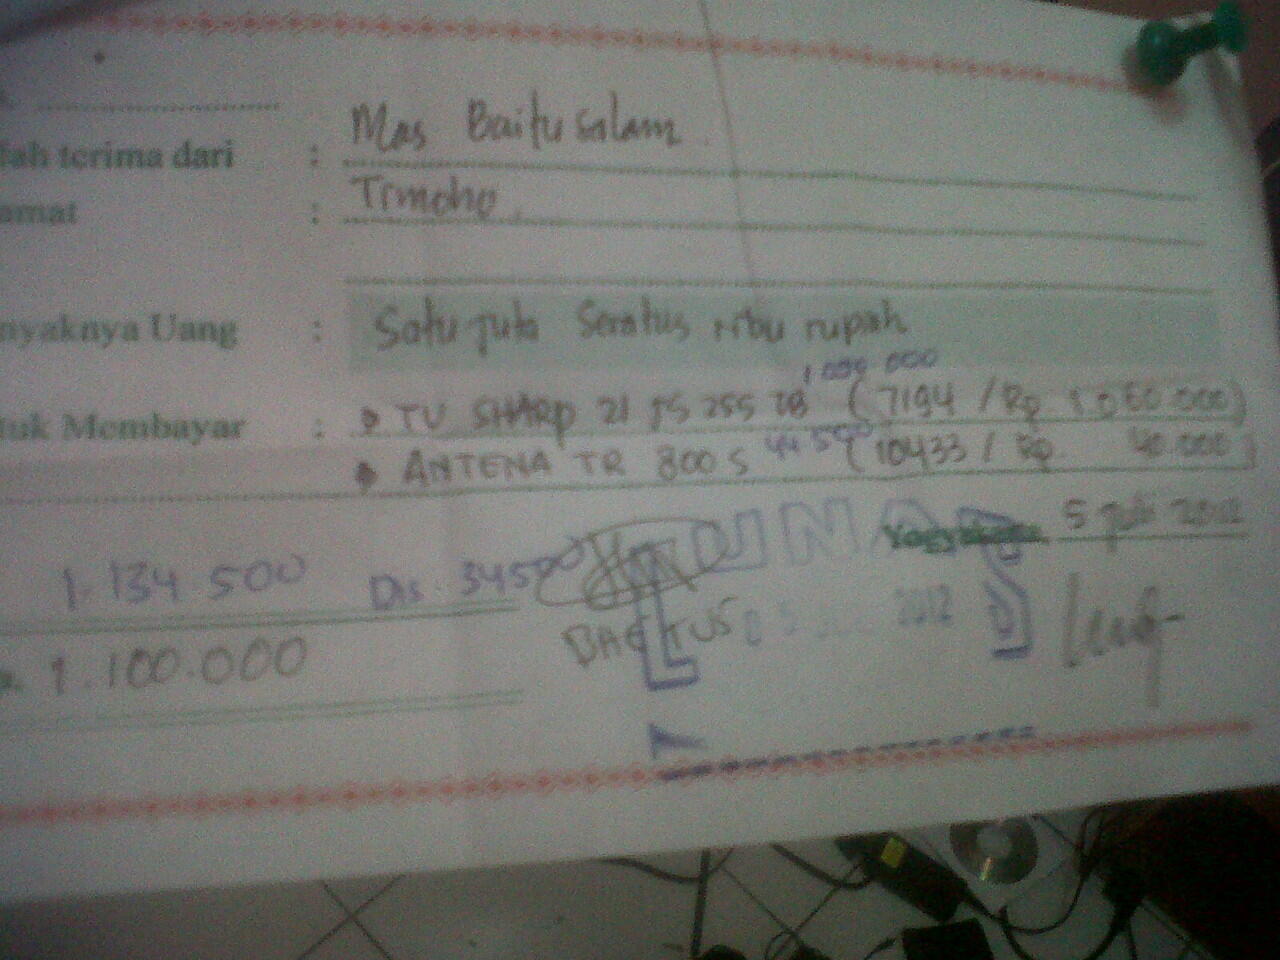 lah terima dari : Mas Baitusalam
amat : Timoho
nyaknya Uang : Satu juta Seratus ribu rupiah
tuk Membayar : TV SHARP 21 (7194 / Rp 1.060.000)
ANTENA TR 800 S 44.500 (10433 / Rp 40.000)
Yogyakarta 5 Juli 2012
1.134.500 Dis. 34500
LUNAS
BAGUS 2012
1.100.000